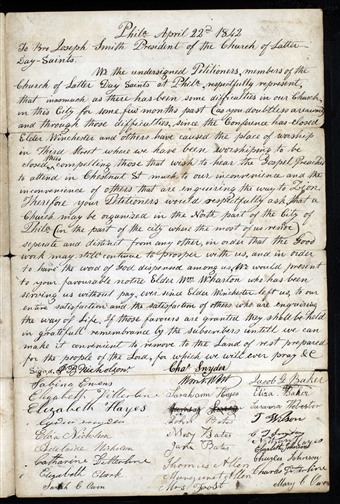 Phila April 22nd 1842
To Bro Joseph Smith President of the Church of Latter
Day-Saints.
We the undersigned Petitioners, members of the
Church of Latter Day Saints at Phila, respectfully represent,
that inasmuch as there has been some difficulties in our Church
in this City for some few months past (as you doubtless are aware)
and through those difficulties, since the Conference has closed
Elder Winchester and others have caused the place of worship
in Third Street where we have been worshiping to be
closed, thus compelling those that wish to hear the Gospel preached
to attend in Chestnut St much to our inconvenience and the
inconvenience of others that are enquiering the way to Zion.
Therefore your Petitioners would respectfully ask that a
Church may be organized in the North part of the City of
Phila (in the part of the city where the most of us reside)
seperate and distinct from any other, in order that the Good
work may still continue to prosper with us, and in order
to have the word of God dispensed among us, We would present
to your favourable notice Elder Wm Wharton who has been
serving us without pay, ever since Elder left us, to our
entire satisfaction and the satisfaction of others who are enquiering
the way of Life. If those favours are granted they shall be held
in gratefull remembrance by the subscribers untill we can
make it convenient to remove to the Land of rest prepared
for the people of the Lord, for which we will ever pray &C
Signd, J. B. Nicholson Chas Snyder
Jacob G Baker
Sabina Ewens Sarahann Hayes Eliza Baker
Elizabeth
Elizabeth Hayes
John Bates T Wilson
Eliza Nicholson May Bates
Jane Bates Elizabeth
Catharine Thomas Allen Charles Johnson
Elizabeth Clark Margaret Allen Charles
Sarah C Owen Mrs Mary C Owen